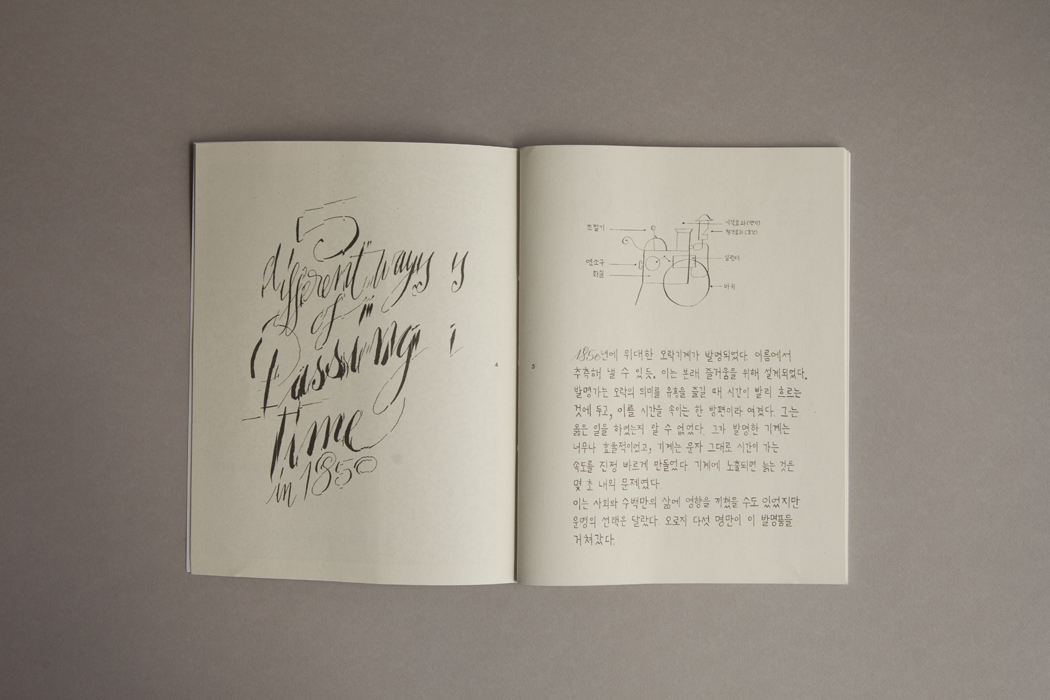 5
different ways
of
Passing
time
in 1850
4
5
조절기
연소구
화실
실린더
바퀴
1850년에 위대한 오락기계가 발명되었다. 이름에서
추측해 낼 수 있듯, 이는 본래 즐거움을 위해 설계되었다.
발명가는 오락의 의미를 유흥을 즐길 때 시간이 빨리 흐르는
것에 두고, 이를 시간을 속이는 한 방편이라 여겼다. 그는
옳은 일을 하였는지 알 수 없었다. 그가 발명한 기계는
너무나 효율적이었고, 기계는 문자 그대로 시간이 가는
속도를 진정 빠르게 만들었다. 기계에 노출되면 늙는 것은
몇 초 내의 문제였다.
이는 사회와 수백만의 삶에 영향을 끼쳤을 수도 있었지만
운명의 선택은 달랐다. 오로지 다섯 명만이 이 발명품을
거쳐갔다.